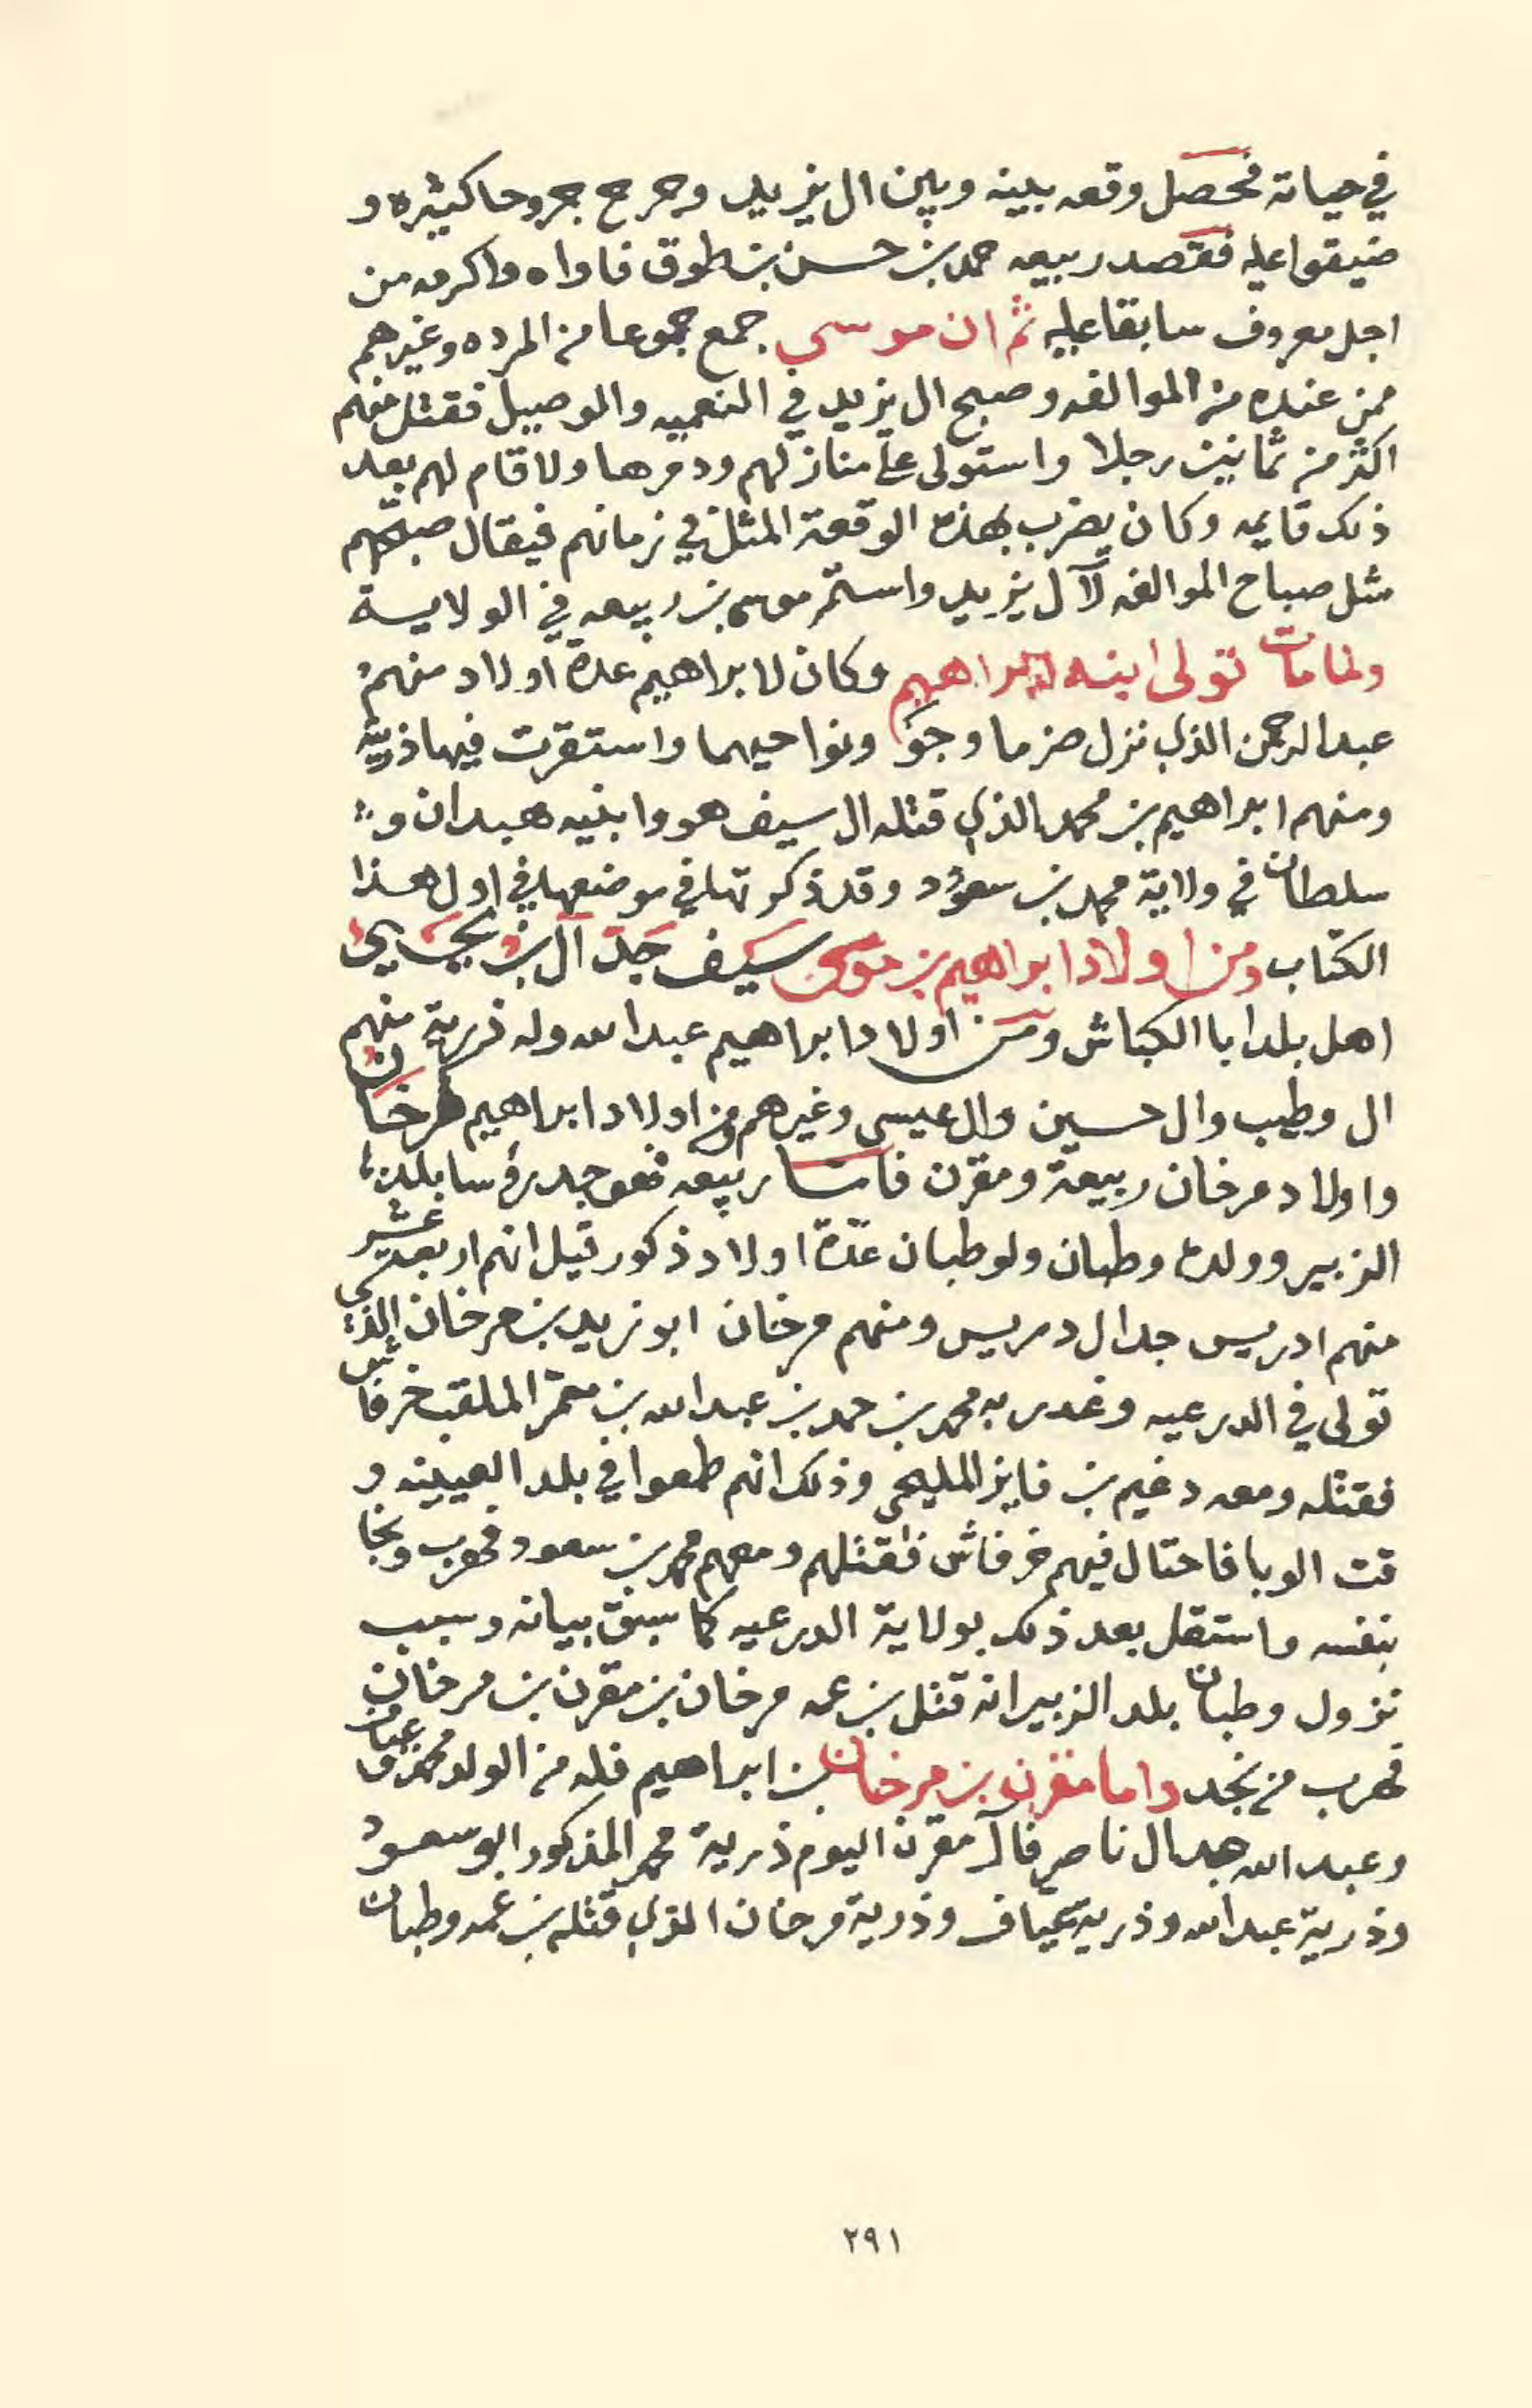 في حياته فحصل وقعه بينه وبين ال يزيد وجرح جروحا كثيره و
ضيقوا عليه فقصد ربيعه حمد بن حسن بن طوق فاواه واكرمه من
اجل معروف سابقا عليه ثم ان موسى جمع جموعا من المرده وغيرهم
ممن عنده من الموالفه وصبح ال يزيد في النعميه والوصيل فقتل منهم
اكثر من ثمانين رجلا واستولى على منازلهم ودمرها ولا قام لهم بعد
ذلك قايمه وكان يضرب بهذه الوقعة المثل في زمانهم فيقال صبحهم
مثل صباح الموالفه لآل يزيد واستمر موسى بن ربيعه في الولاية
ولما مات تولى ابنه ابراهيم وكان لابراهيم عدة اولاد منهم
عبد الرحمن الذي نزل ضرما وجو ونواحيهما واستقرت فيها ذريته
ومنهم ابراهيم بن محمد الذي قتله ال سيف هو وابنيه هبدان و
سلطان في ولاية محمد بن سعود وقد ذكرتها في موضعها في اول هذا
الكتاب ومن اولاد ابراهيم بن موسى سيف جد آل بن يحيى
اهل بلد ابا الكباش ومن اولاد ابراهيم عبد الله وله ذرية منهم
ال وطيب وال حسين وال عيسى وغيرهم ومن اولاد ابراهيم مرخان
واولاد مرخان ربيعة ومقرن فاما ربيعه فهو جد رؤسا بلد
الزبير وولده وطبان ولوطبان عدة اولاد ذكور قيل انهم اربعة عشر
منهم ادريس جد ال دريس ومنهم مرخان ابو زيد بن مرخان الذي
تولى في الدرعيه وغدر به محمد بن حمد بن عبد الله بن معمر الملقب خرفاش
فقتله ومعه دغيم بن فايز المليحي وذلك انهم طمعوا في بلد العيينه و
قت الوبا فاحتال فيهم خرفاش فقتلهم ومعهم محمد بن سعود فهرب ونجا
بنفسه واستقل بعد ذلك بولاية الدرعيه كما سبق بيانه وسبب
نزول وطبان بلد الزبير انه قتل بن عمه مرخان بن مقرن بن مرخان
فهرب من نجد واما مقرن بن مرخان بن ابراهيم فله من الولد محمد وعياف
وعبد الله جد ال ناصر فآل مقرن اليوم ذرية محمد المذكور ابو سعود
وذرية عبد الله وذرية عياف وذرية مرخان الذي قتله بن عمه وطبان
٢٩١